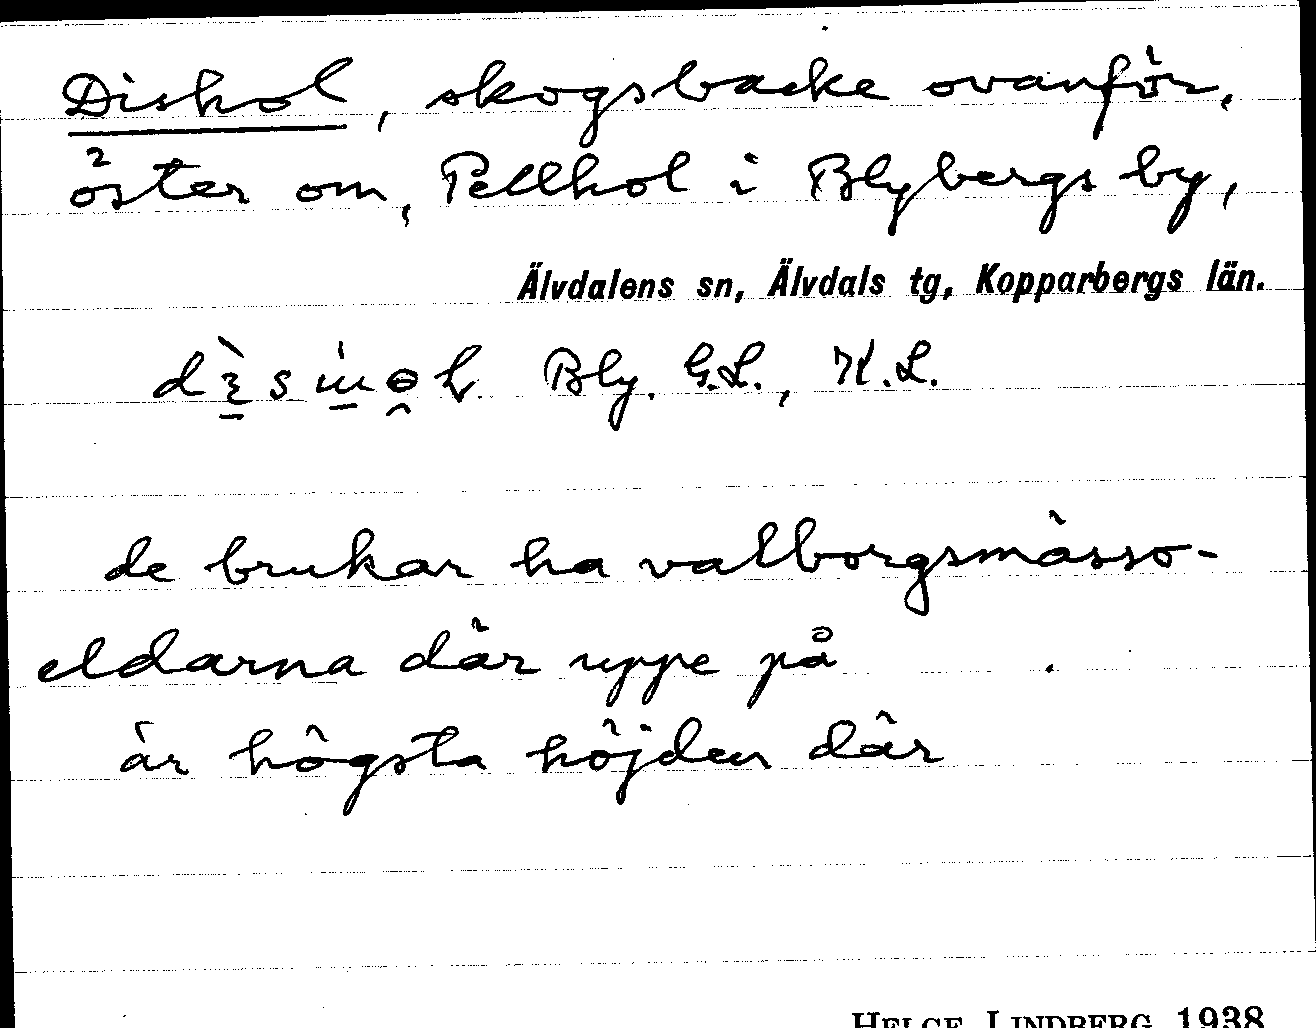 Dishol, skogsbacke ovanför,
öster om, Pellhol i Blybergs by,
Älvdalens sn, Älvdals tg, Kopparbergs län.
Bly. G.L., K.L.
de brukar ha valborgsmässo-
eldarna där uppe på
är högsta höjden där
HELGE LINDBERG 1938